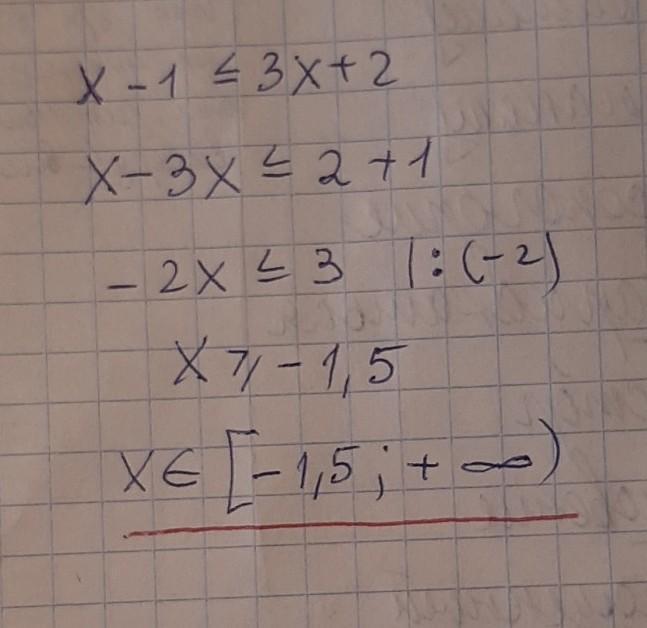 x - 1 ≤ 3x + 2
x - 3x ≤ 2 + 1
- 2x ≤ 3 | : (-2)
x ⩾ - 1,5
x ∈ [- 1,5 ; + ∞)